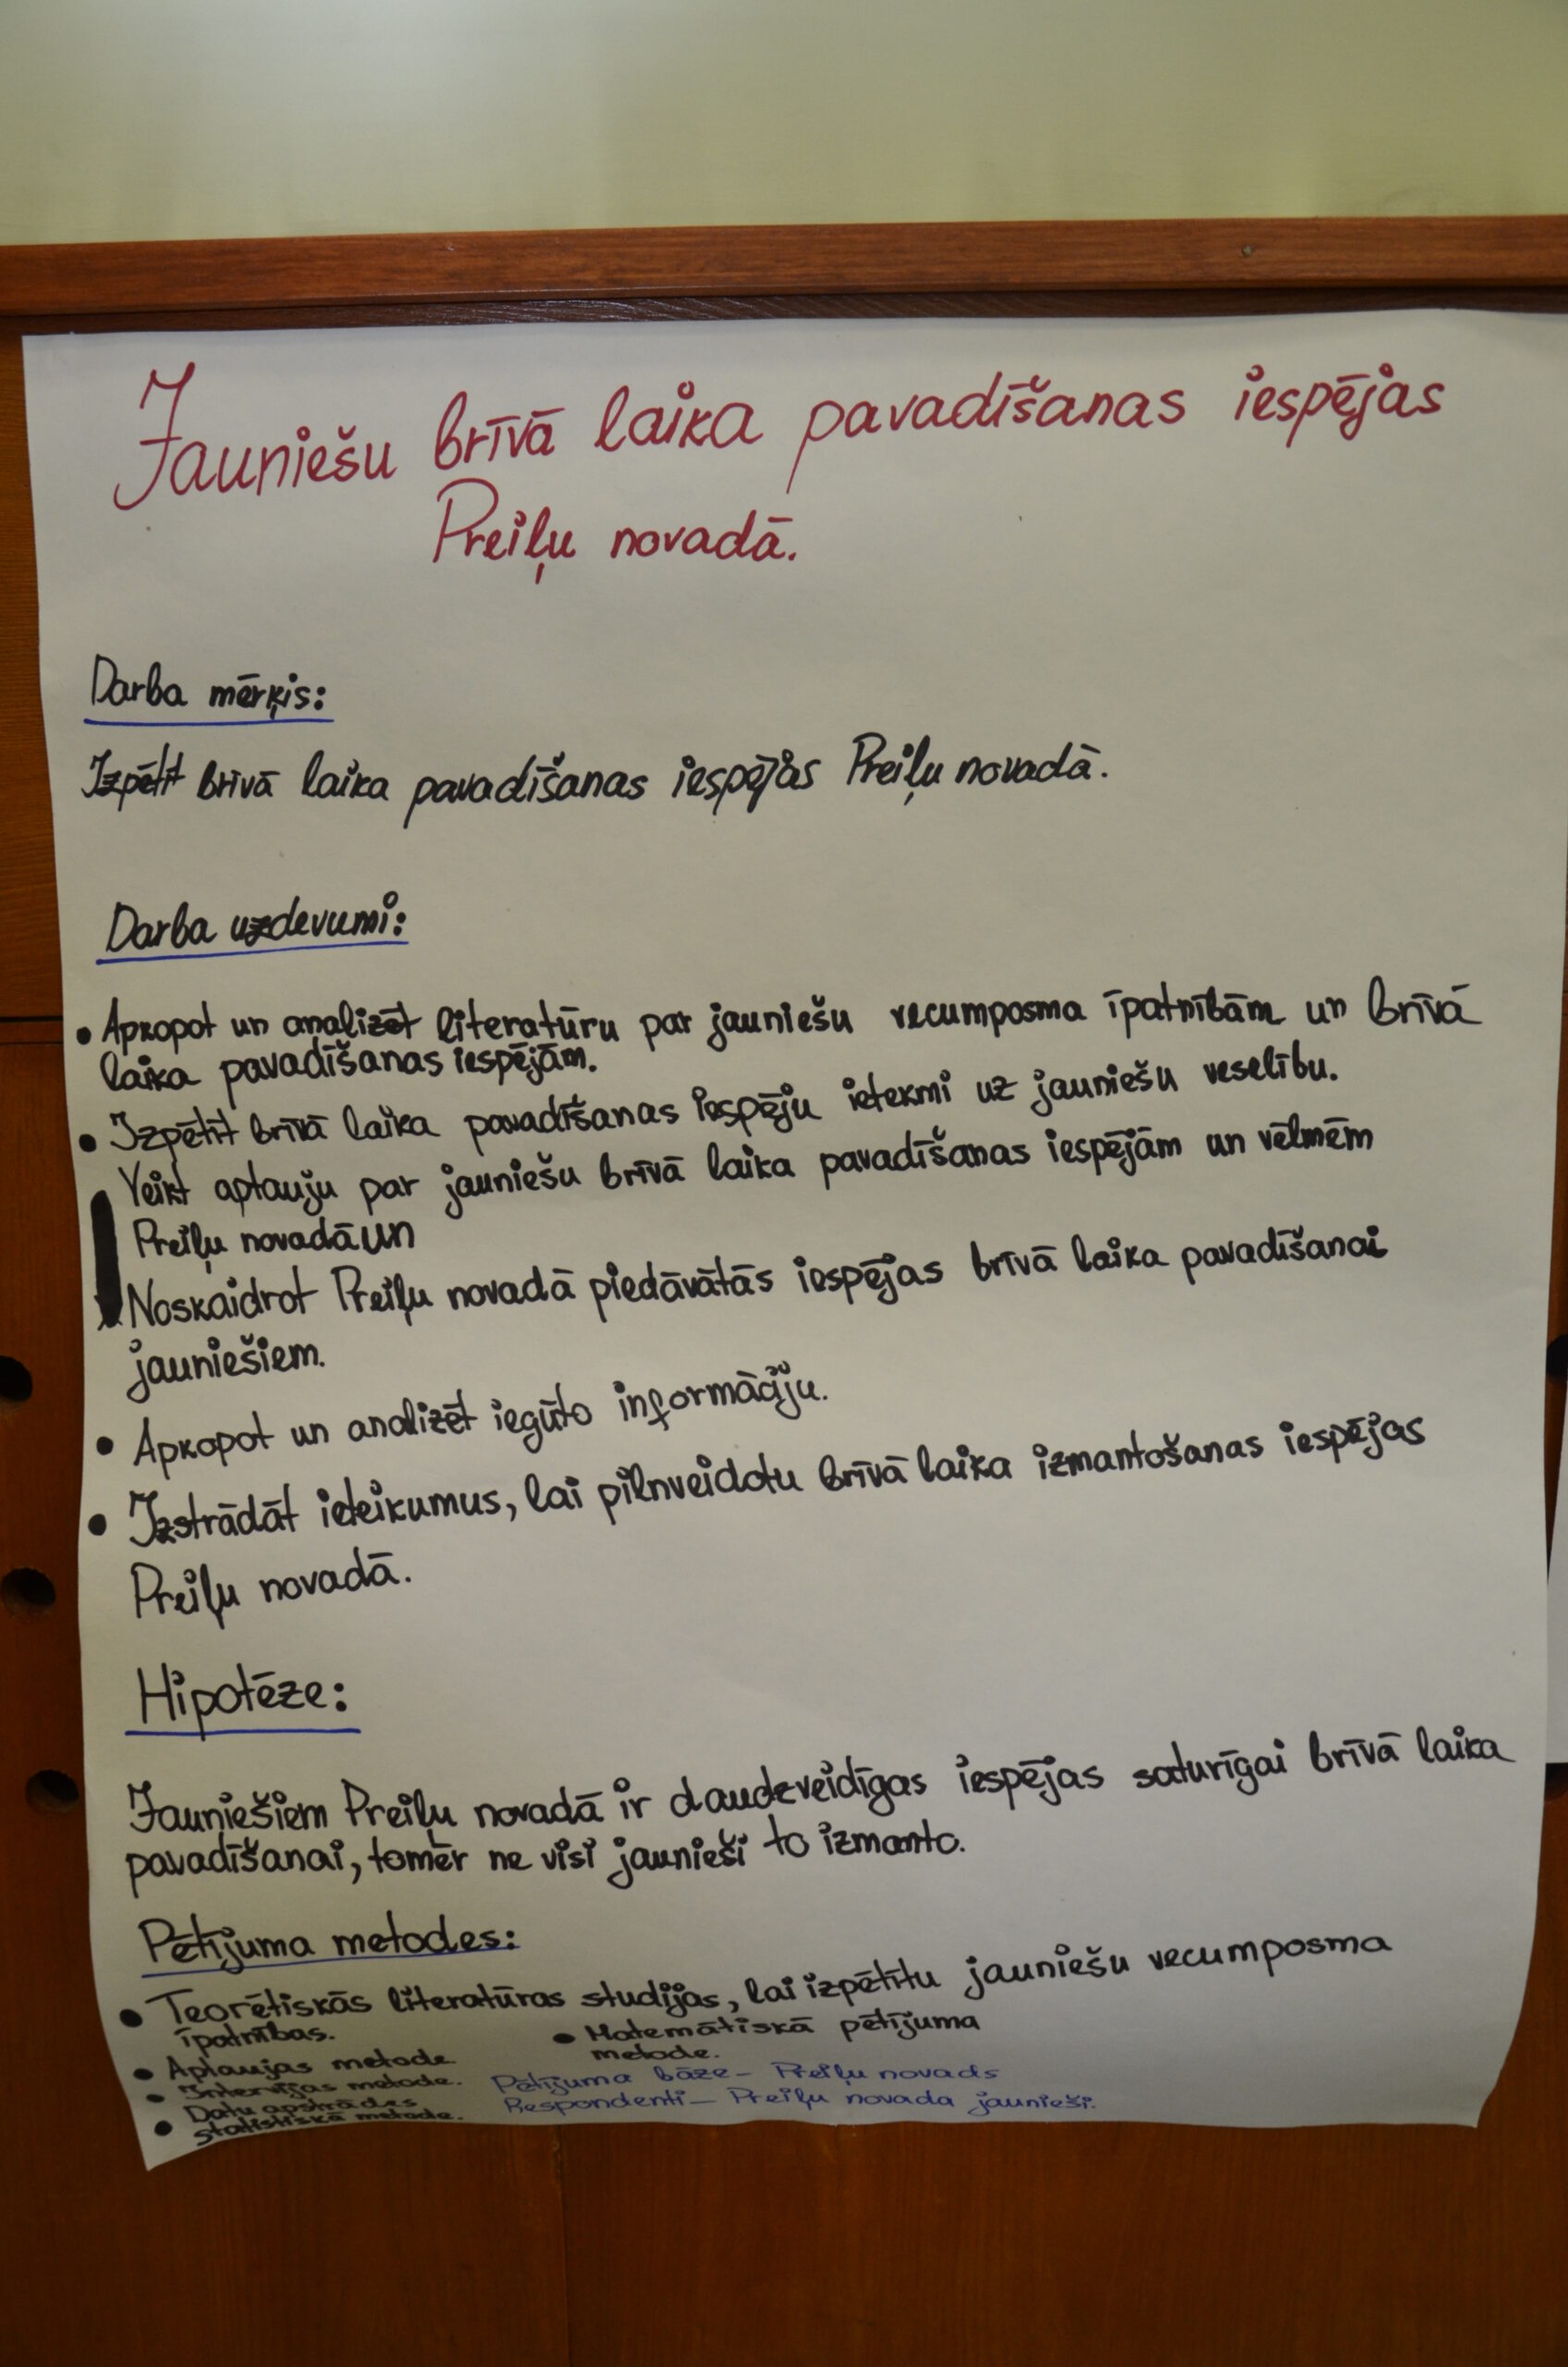 Jauniešu brīvā laika pavadīšanas iespējas
Preiļu novadā.
Darba mērķis:
Izpētīt brīvā laika pavadīšanas iespējas Preiļu novadā.
Darba uzdevumi:
• Apkopot un analizēt literatūru par jauniešu vecumposma īpatnībām un brīvā
laika pavadīšanas iespējām.
• Izpētīt brīvā laika pavadīšanas iespēju ietekmi uz jauniešu veselību.
Veikt aptauju par jauniešu brīvā laika pavadīšanas iespējām un vēlmēm
Preiļu novadā un
Noskaidrot Preiļu novadā piedāvātās iespējas brīvā laika pavadīšanai
jauniešiem.
• Apkopot un analizēt iegūto informāciju.
• Izstrādāt ieteikumus, lai pilnveidotu brīvā laika izmantošanas iespējas
Preiļu novadā.
Hipotēze:
Jauniešiem Preiļu novadā ir daudzveidīgas iespējas saturīgai brīvā laika
pavadīšanai, tomēr ne visi jaunieši to izmanto.
Pētījuma metodes:
• Teorētiskās literatūras studijas, lai izpētītu jauniešu vecumposma
īpatnības.
• Aptaujas metode.
• Intervijas metode.
• Datu apstrādes
statistiskā metode.
• Matemātiskā pētījuma
metode.
Pētījuma bāze – Preiļu novads
Respondenti – Preiļu novada jaunieši.